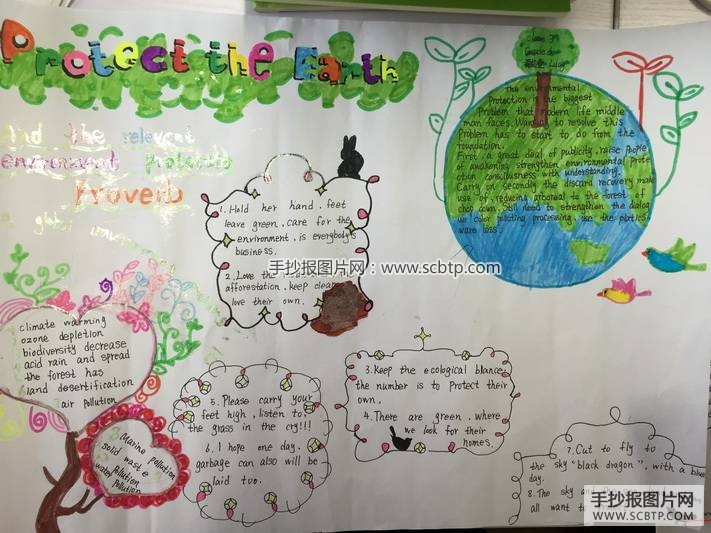 Protect the Earth
And the relevent
environment protectio
Proverb
Class 39
The environmental
Protection is the biggest
Problem that modern life middle
man faces. Want to resolve this
Problem has to start to do from the
foundation.
First, a great deal of publicity, raise People
of awakening, strengthen environmental prote
ction consciousness with understanding.
Carry on secondly the discard recovery make
use of, reducing arboreal to the forest of
chop down. Still need to strengthen the dialog
ue color polluting processing, use the
waste loss.
1. Hold her hand, feet
leave green, care for the
environment, is everybody's
business.
2. Love the
afforestation, keep clean
love their own.
手抄报图片网：www.scbtp.com
climate warming
ozone depletion
biodiversity decrease
acid rain and spread
the forest has
land desertification
air pollution
Marine pollution
solid waste
pollution
water pollution
5. Please carry your
feet high, listen to
the grass in the cry!!!
6. I hope one day,
garbage can also will be
laid too.
3. Keep the ecological blance,
the number is to protect their
own.
4. There are green, where
we look for their
homes.
7. Cut to fly to
the sky "black dragon", with a blue
day.
8. The sky and
all want to
手抄报图片网
WWW.SCBTP.COM